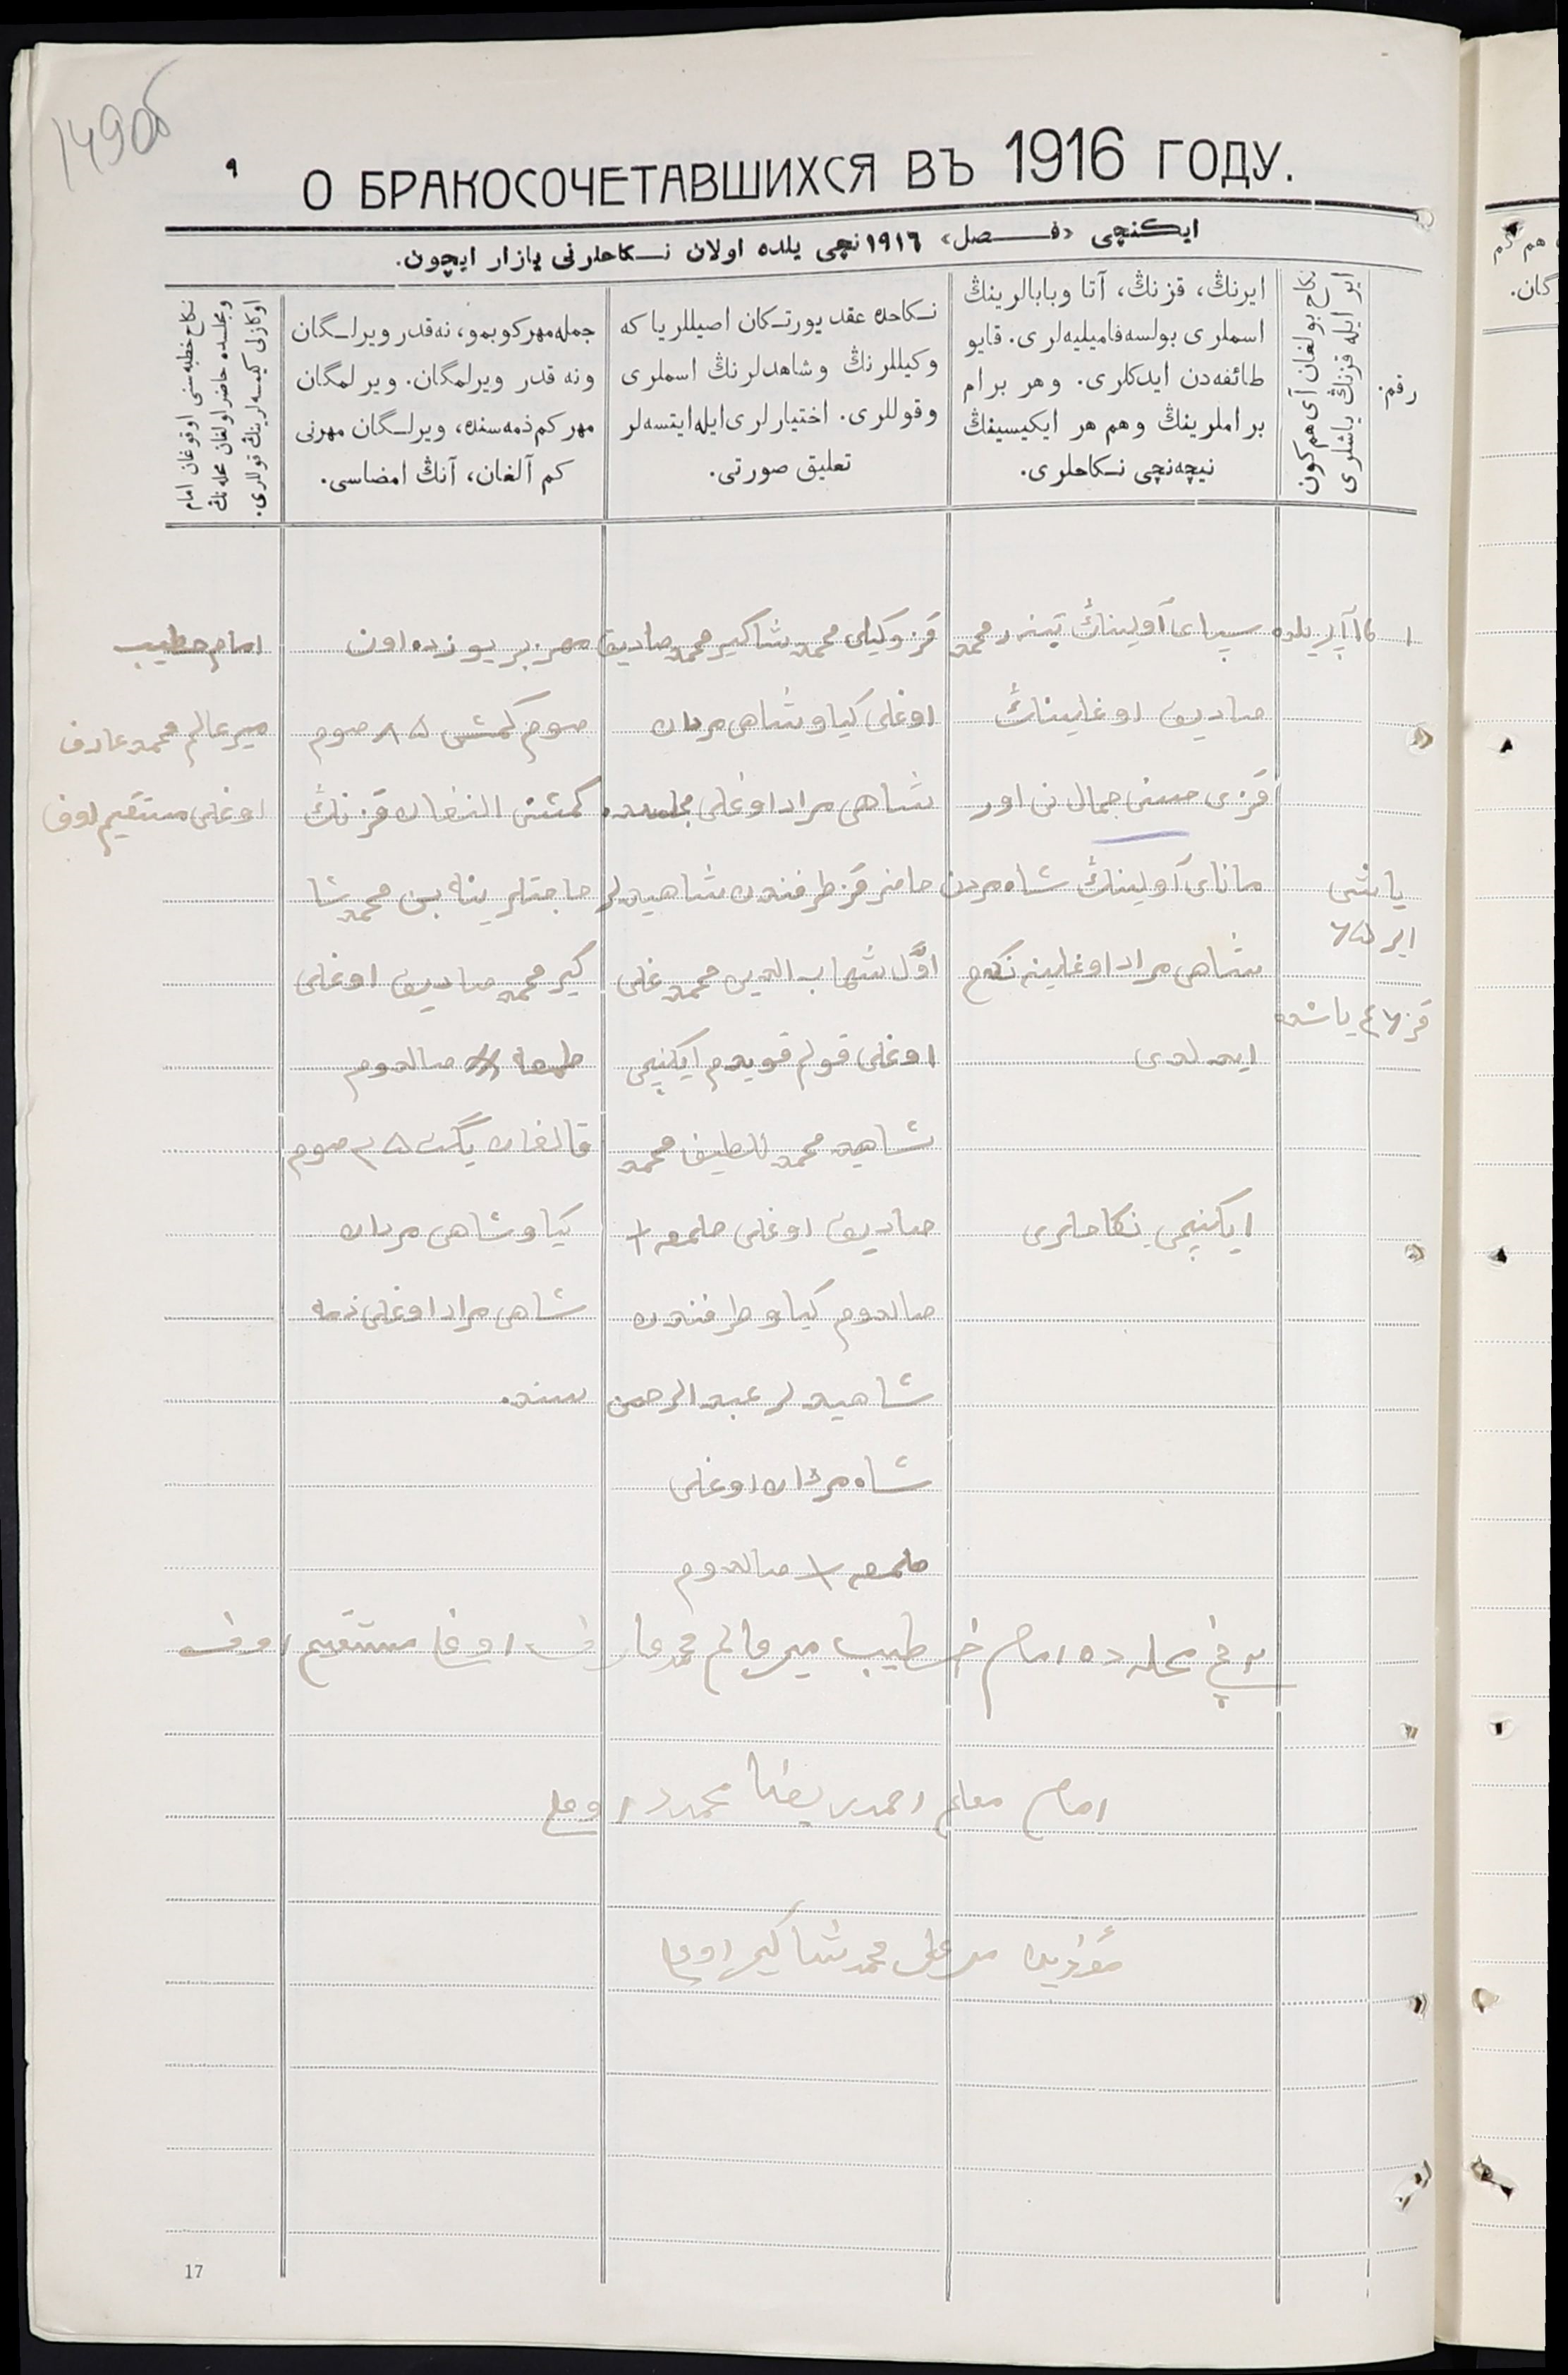 149об
٩
О БРАКОСОЧЕТАВШИХСЯ ВЪ 1916 ГОДУ.
ایكنچی «فـصل» ١٩١٦نچی یلده اولان نـكاحلرنی یازار ایچون.
رقم:
نكاح بولغان آی هم كون
ایر ایله قزنڭ یاشلری
ایرنڭ، قزنڭ، آتا وبابالرینڭ
اسملری بولسه فامیلیه‌لری. قایو
طائفه‌دن ایدكلری. وهر برام
براملرینڭ وهم هر ایكیسینڭ
نیچه‌نچی نـكاحلری.
نـكاحده عقد یورتـكان اصیللر یا كه
وكیللرنڭ وشاهدلرنڭ اسملری
وقوللری. اختیارلری ایله ایتسه‌لر
تعلیق صورتی.
جمله‌مهر كوبمو، نه‌قدر ویرلـگان
ونه قدر ویرلمگان. ویرلمگان
مهر كم ذمه‌سنده، ویرلـگان مهرنی
كم آلغان، آنڭ امضاسی.
نـكاح خطبه‌سنی اوقوغان امام
ومجلسده حاضر اولغان محله‌نڭ
اوكازلی كیمسه‌لرینڭ قوللری.
١
١٦ آپریلده
یاشی
ایر ٦٥
قز ٤٦ یاشده
آولیناڭ محمد
صادیق اوغلیناڭ
قزی حسنی جمال نی اور
مانای آولیناڭ شاه‌مردن
شاهی مراد اوغلینه نكاح
ایكنچی نكاحلری
قز وكیلی محمد شاكیر محمد صادیق
اوغلی كیاو شاهی مردان
شاهی مراد اوغلی مجلسده
حاضر قز طرفندن شاهیدلر
اوّل شهاب الدین محمد غلی
اوغلی قولم قویدم ایكنچی
شاهید محمد للطیف محمد
صادیق اوغلی
صالدوم كیاو طرفندن
شاهیدلر عبد الرحمن
شاه مردان اوغلی
صالدوم
مهر بر یوزده اون
صوم كمشی ٨٥ صوم
كمشنی النغان قزنڭ
كیر محمد صادیق اوغلی
صالدوم
قالغان ٢٥ صوم
كیاو شاهی مردان
شاهی مراد اوغلی ذمه
سنده.
امام خطیب
میر عالم محمد عارف
اوغلی مستقیم اوف
محله ده امام خطیب میر عالم محمد عارف اوغلی مستقیم اوف
امام معلم احمد محمد اوغلی
محمد شاكیر اوغلی
17